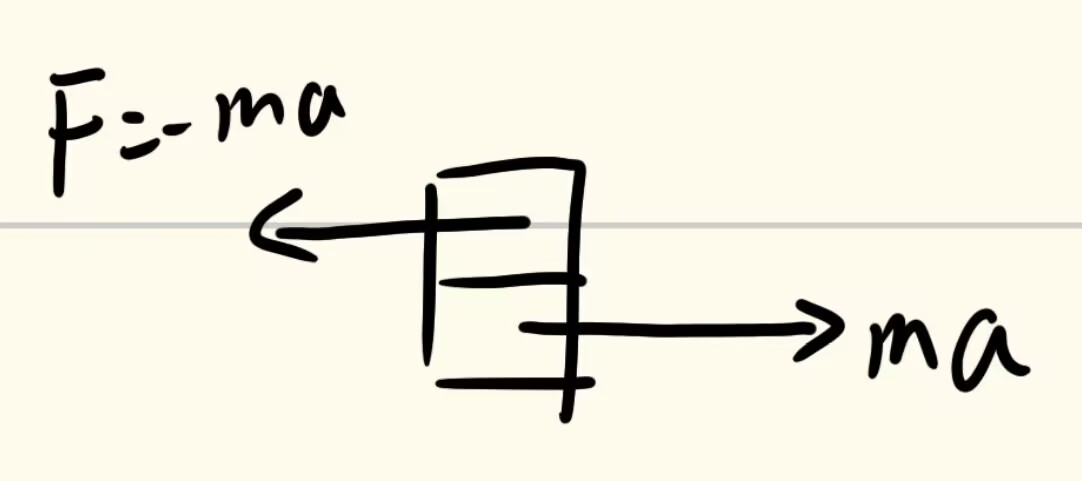 F=-ma
ma